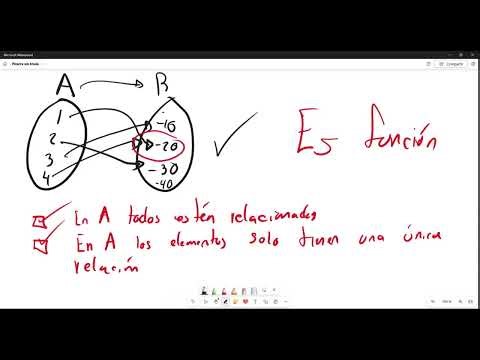 Microsoft Whiteboard
Pizarra sin título
Compartir
A → B
1
2
3
4
-10
-20
-30
-40
Es función
En A todos estén relacionados
En A los elementos solo tienen una única
relación